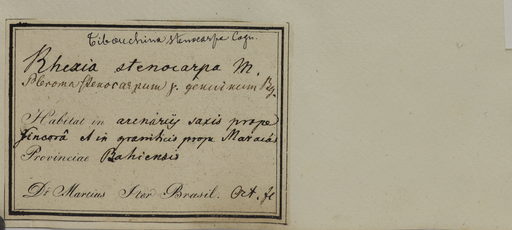 Tibouchina stenocarpa Cogn.
Rhexia stenocarpa M.
Pleroma stenocarpum γ. genuinum
Habitat in arenariis saxis prope
Sincorá et in graniticis prope Maracás
Provinciae Bahiensis
Dr Martius Iter Brasil. Oct.